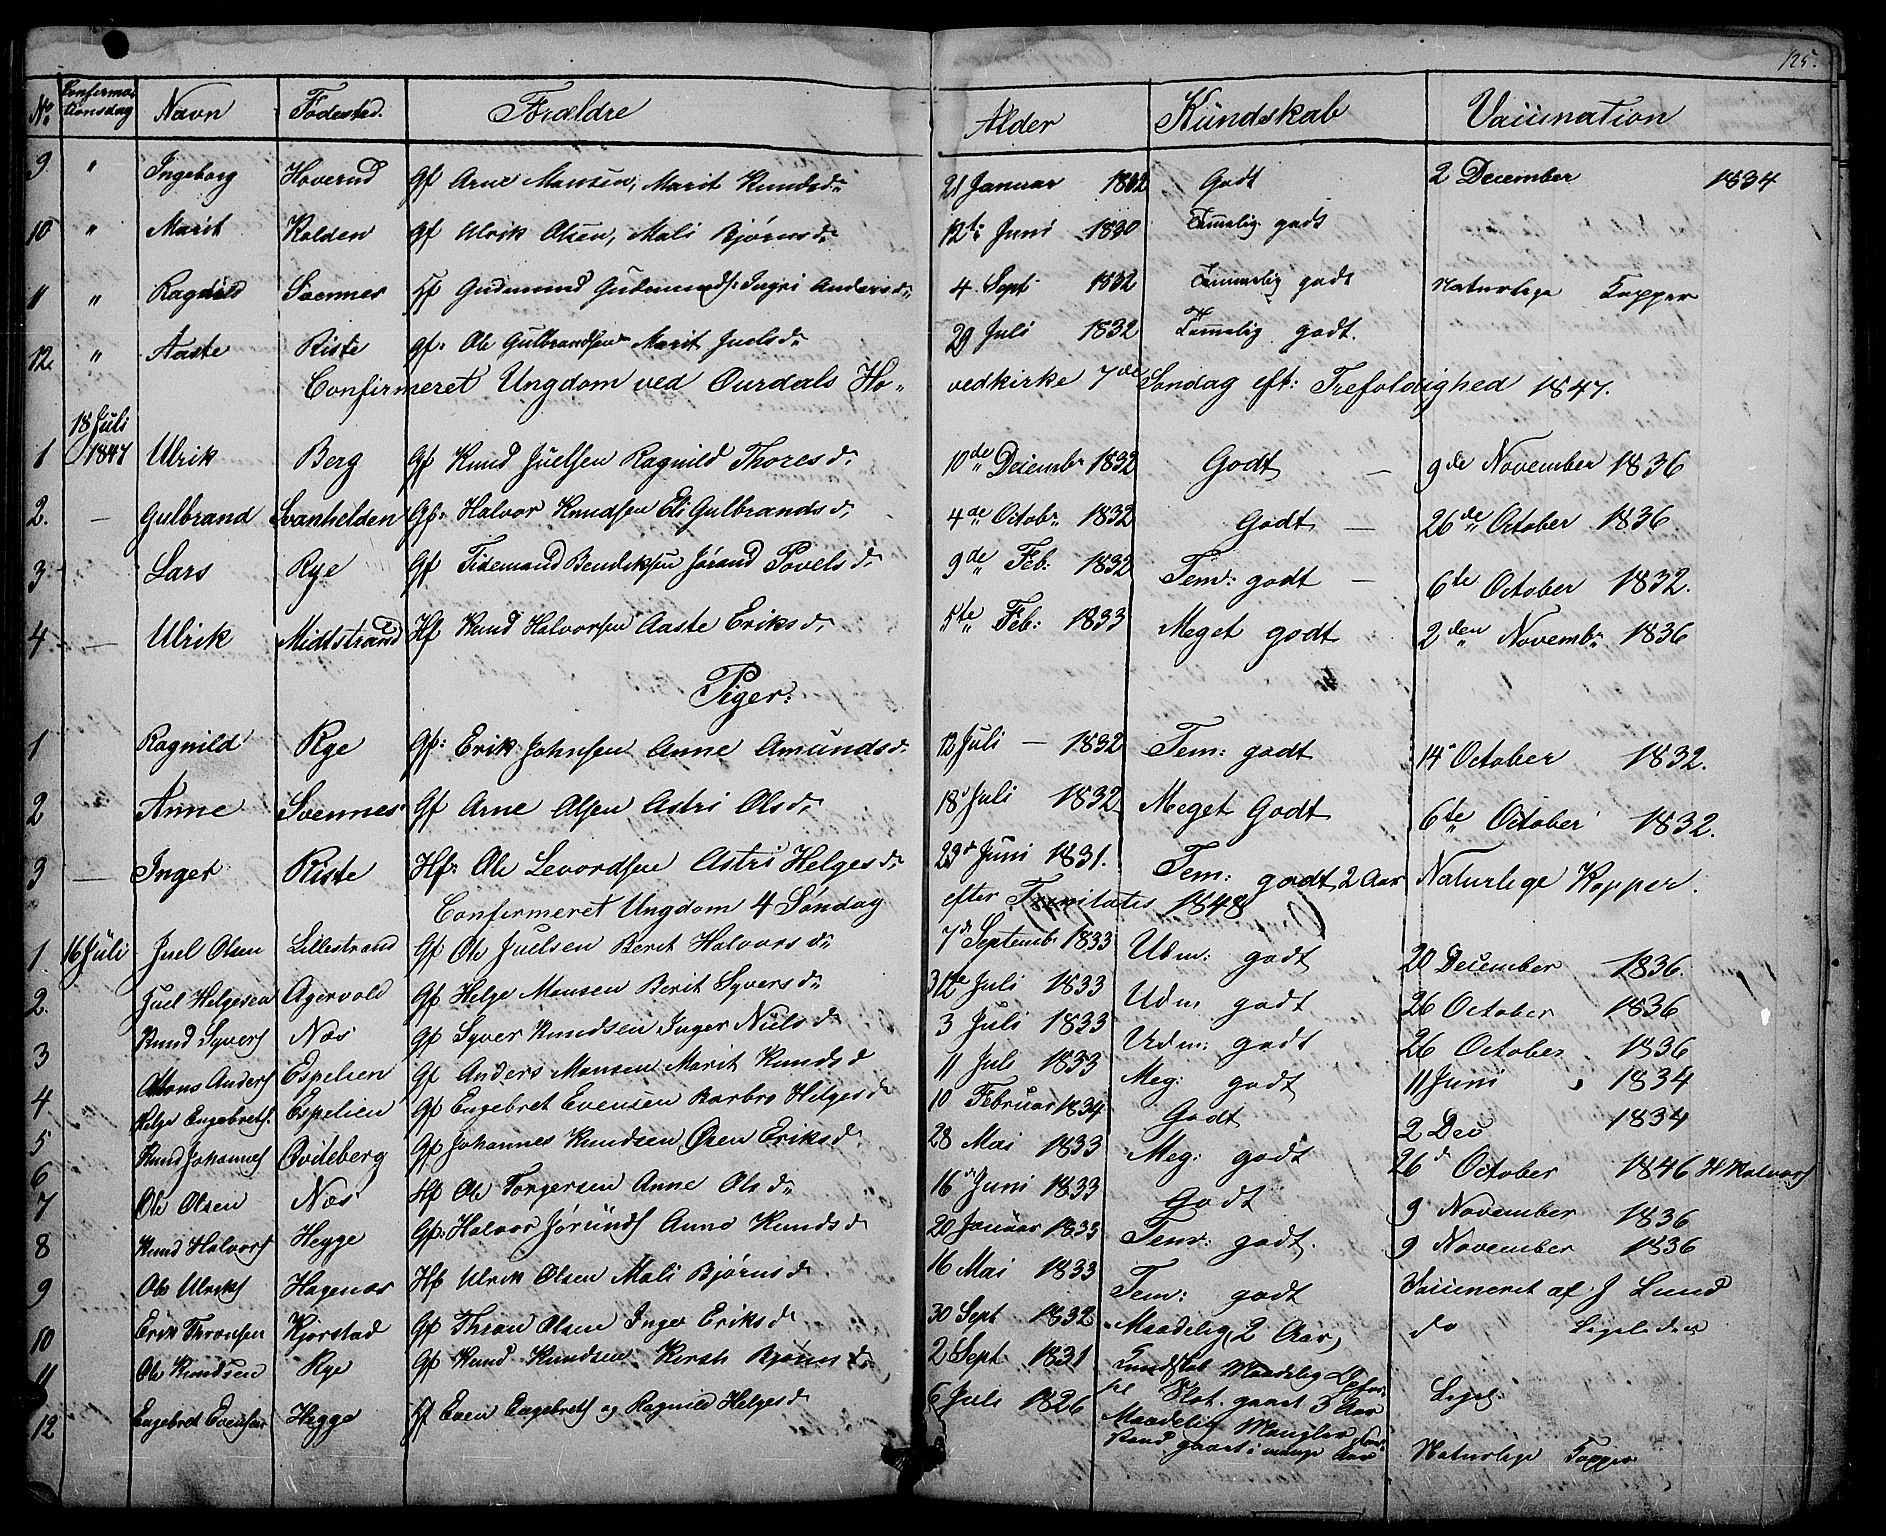 125.
No Confirmationsdag Navn Fødested. Forældre Alder Kundskab Vaccination
9. " Ingeborg Haverud Gf Arne Monsen, Marit Knudsd. 21 Januar 1832 Godt 2 December 1834
10 " Marit Kolden Gf Ulrik Olsen, Mali Bjørnsd. 12te Juni 1830 Temmelig godt
11 " Ragnild Svennes Gudmund Gudmunds. Ingri Andersd. 4 Sept 1832 Temmelig godt Naturlige Kopper
12. " Aaste Riste gf. Ole Gulbrandsen Marit Juelsd. 29 Juli 1832 Temmelig godt.
Confirmeret Ungdom ved Ourdals Hovedkirke 7de Søndag eft: Trefoldighed 1847.
18 Juli 1847
1 Ulrik Berg Gf Knud Juelsen Ragnild Thoresd. 10de Decembr 1832 Godt – 9de November 1836
2. – Gulbrand Svanhelden Gf. Halvor Knudsen Eli Gulbrandsd. 4de Octobr 1832 Godt – 26de October 1836
3 – Lars Rye Gf Tidemand Bendiksen Jørand Povelsd. 9de Feb: 1832 Tem: godt – 6te October 1832.
4 – Ulrik Midtstrand Hf Knud Halvorsen Aaste Eriksd. 5te Feb: 1833 Meget godt 2den Novembr 1836
Piger:
1 Ragnild Rye Gf: Erik Johnsen Anne Amundsd. 12 Juli – 1832 Tem: godt 14 October 1832.
2 Anne Svennes Gf Arne Olsen Astri Olsd. 18 Juli 1832 Meget Godt 6te October 1832.
3 – Inger Riste Hf: Ole Levordsen Astri Helgesd. 23d Juni 1831. Tem: godt, 2 Aar Naturlige Kopper.
Confirmeret Ungdom 4 Søndag efter Trinitatis 1848
1 16 Juli Juel Olsen Lillestrand Gf Ole Juelsen Berit Halvorsd. 7d Septembr 1833 Udm: godt 20 December 1836.
2. Juel Helgesen Agervold Gf Helge Monsen Berit Syversd. 31te Juli 1833 Udm godt 26 October 1836
3 Knud Syvers Næs Gf Syver Knudsen Inger Nielsd. 3 Juli 1833 Udm: godt 26 October 1836
4 Mons Anders Espelien Gf Anders Monsen Marit Knudsd 11 Juli 1833 Meg: godt 11 Juni 1834
5 Helge Engebrets. Espelien Gf Engebret Evensen Barbro Helgesd. 10 Februar 1834 Godt 2 Dec 1834
6 Knud Johannes Qvileberg Gf Johannes Knudsen Eriksd. 28 Mai 1833 Meg: godt 26d October 1846 H Halvors
7 Ole Olsen Næs Hf Ole Torgersen Anne Olsd. 16d Juni 1833 Godt 9 November 1836
8 Knud Halvors Hegge Gf: Halvor Jørunds Anne Knudsd 20 Januar 1833 Tem: godt. 9 November 1836
9 Ole Ulriks Hagenæs Hf Ulrik Olsen Mali Bjørnsd. 16 Mai 1833 Tem: godt Vaccineret af J Lund
10 Erik Thronsen Kjørstad Gf Thron Olsen Inger Eriksd. 30 Sept 1832 Maadelig (2 Aar) do Ligeledes
11 Ole Knudsen Rye Gf Knud Knudsen Bjørnsd. 2 Sept 1831 Kundskab Maadelig gaaet 3 Aar Ligel:
12 Engebret Evensen Hegge Even Engebrets og Ragnild Helgesd. 6 Juli 1826 Maadelig Mangler gaaet i mange Aar Naturlige Kopper